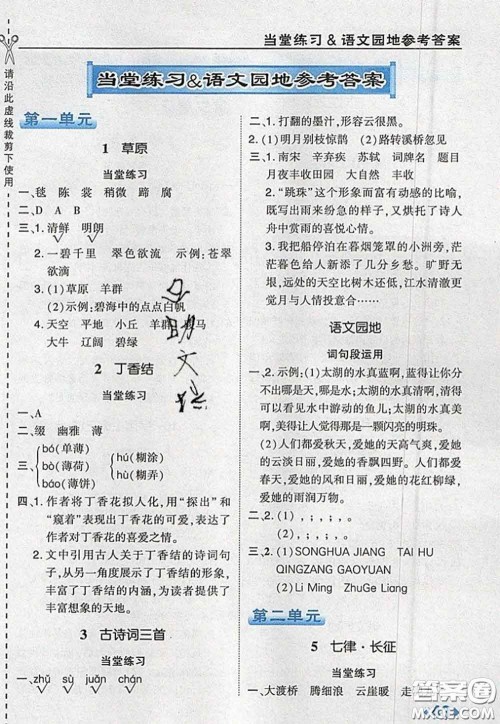 当堂练习&语文园地参考答案
请沿此虚线裁剪下使用
当堂练习&语文园地参考答案
第一单元
1 草原
当堂练习
一、毯 陈 裳 稍微 蹄 腐
二、D A B
三、1.清鲜 明朗
2.一碧千里 翠色欲流 示例:苍翠
欲滴
3.(1)草原 羊群
(2)示例:碧海中的点点白帆
4.天空 平地 小丘 羊群 骏马
大牛 辽阔 碧绿
2 丁香结
当堂练习
一、A
二、缀 幽雅 薄
三、bó(单薄)
báo(薄荷)
báo(薄饼)
hú(糊涂)
hù(糊弄)
四、1.作者将丁香花拟人化,用“探出”和
“窥着”表现了丁香花的可爱,表达
了作者对丁香花的喜爱之情。
2.文中引用古人关于丁香结的诗词句
子,从另一角度展了丁香结的形象,
丰富了丁香结的内涵,为后文抒发
丰富的思想的天地。
3 古诗词三首
当堂练习
一、zhǔ sù juān chán
二、1.打翻的墨汁,形容云很黑。
2.(1)明月别枝惊鹊 (2)路转溪桥忽见
三、1.南宋 辛弃疾 苏轼 词牌名 题目
月夜丰收田园 大自然 丰收
2.“跳珠”这个形象而富有动感的比喻,
既写出雨来纷急的样子,又烘托了诗人
舟中赏雨的喜悦心情。
3.我把船停泊在暮烟笼罩的小洲旁,茫
茫暮色给人新添了几分乡愁。旷野无
垠,远处的天空比树木还低,江水清澈更
觉月与人情投意合……
语文园地
词句段运用
一、2.示例:(1)太湖的水真蓝啊,蓝得让人分
不出哪是天,哪是水;太湖的水真清啊,清得可以
看见水中游动的鱼儿;太湖的水真美啊,
美得让人觉得那是一颗闪亮的明珠。
(2)人们都爱秋天,爱她的天高气爽,爱
她的云淡日丽,爱她的香飘四野。
(3)人们都爱春天,爱她的花红柳绿,
爱她的雨润万物。
二、1.(1),;,;。
(2),,,;。
三、(1)SONGHUA JIANG TAI HU
QINGZANG GAOYUAN
(2)Li Ming ZhuGe Liang
第二单元
5 七律·长征
当堂练习
一、大渡桥 腾细浪 云崖暖
答案圈